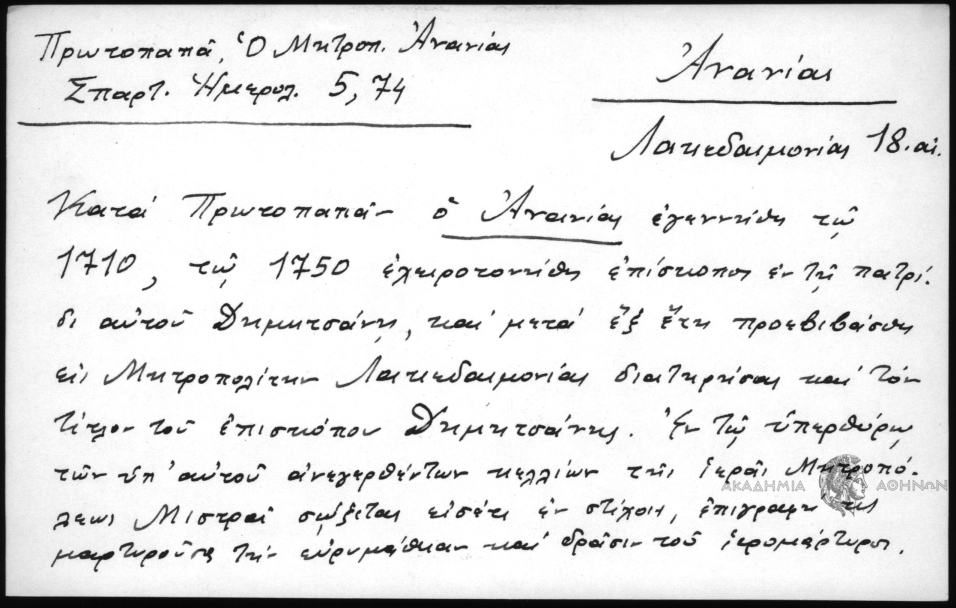 Πρωτοπαπᾶ, Ὁ Μητροπ. Ἀνανίας
Σπαρτ. Ἡμερολ. 5, 74
Ἀνανίας
Λακεδαιμονίας 18. αἰ.
Κατά Πρωτοπαπᾶν ὁ Ἀνανίας ἐγεννήθη τῷ
1710, τῷ 1750 ἐχειροτονήθη ἐπίσκοπος ἐν τῇ πατρί-
δι αὐτοῦ Δημητσάνῃ, καί μετά ἕξ ἔτη προεβιβάσθη
εἰς Μητροπολίτην Λακεδαιμονίας διατηρήσας καί τόν
τίτλον τοῦ ἐπισκόπου Δημητσάνης. Ἐν τῷ ὑπερθύρῳ
τῶν ὑπ' αὐτοῦ ἀνεγερθέντων κελλίων τῆς ἱερᾶς Μητροπό-
λεως Μιστρᾶ σῴζεται εἰσέτι ἐν στίχοις, ἐπιγραφή τις
μαρτυροῦσα τήν εὐρυμάθειαν καί δρᾶσιν τοῦ ἱερομάρτυρος.
ΑΚΑΔΗΜΙΑ ΑΘΗΝΩΝ